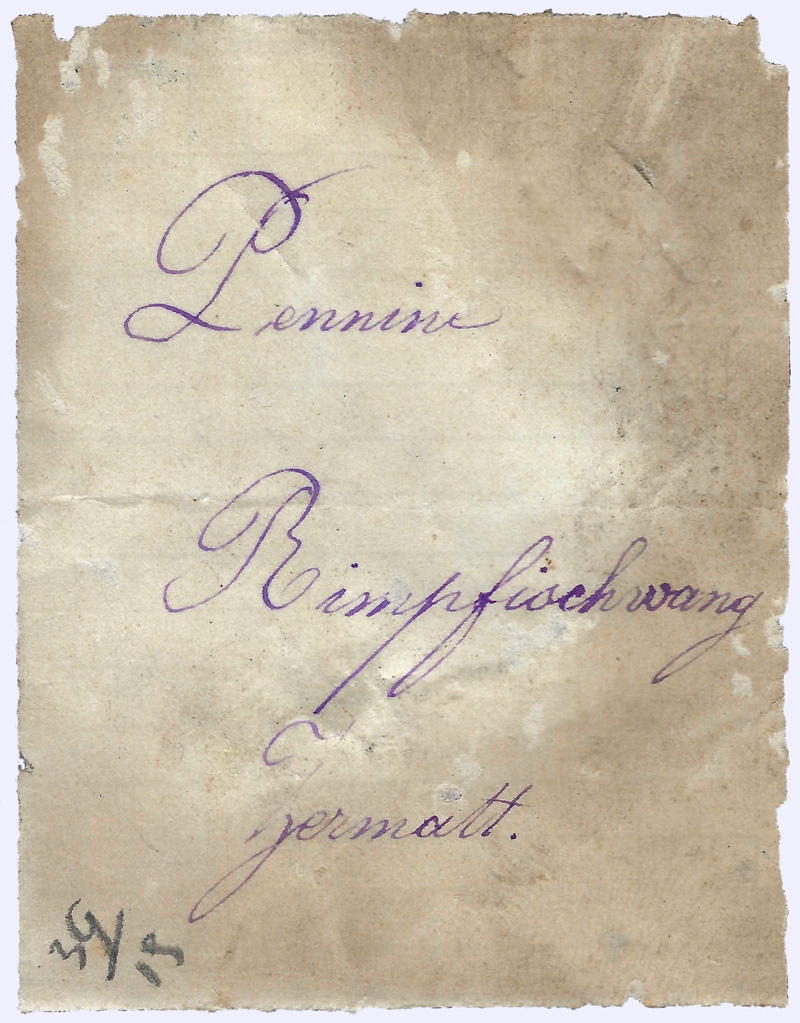 Pennine
Rimpfischwang
Zermatt.